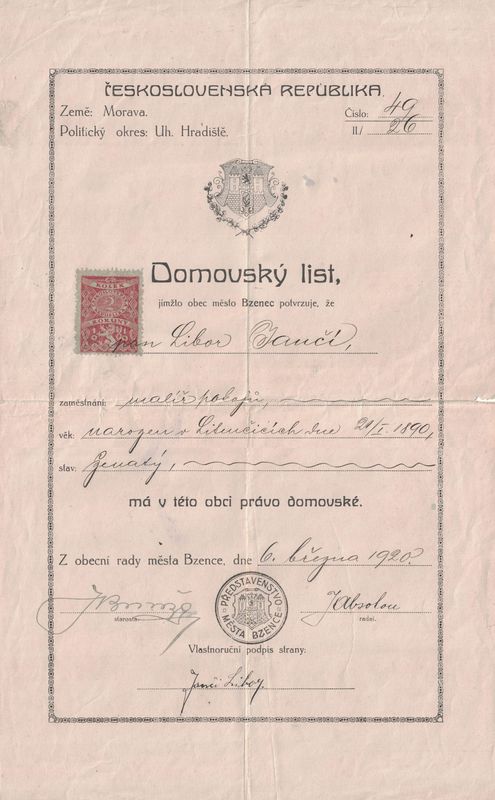 ČESKOSLOVENSKÁ REPUBLIKA.
Země: Morava.
Číslo: 49
Politický okres: Uh. Hradiště.
II./ 26
Domovský list,
jímžto obec město Bzenec potvrzuje, že
KOLEK
2
KORUNY
pan Libor Jančí,
zaměstnání: malíř pokojů,
věk: narozen v Litenčicích dne 21/I. 1890,
stav: ženatý,
má v této obci právo domovské.
Z obecní rady města Bzence, dne 6. března 1920.
PŘEDSTAVENSTVO MĚSTA BZENCE
JAbsolon
starosta.
radní.
Vlastnoruční podpis strany:
Jančí Libor.